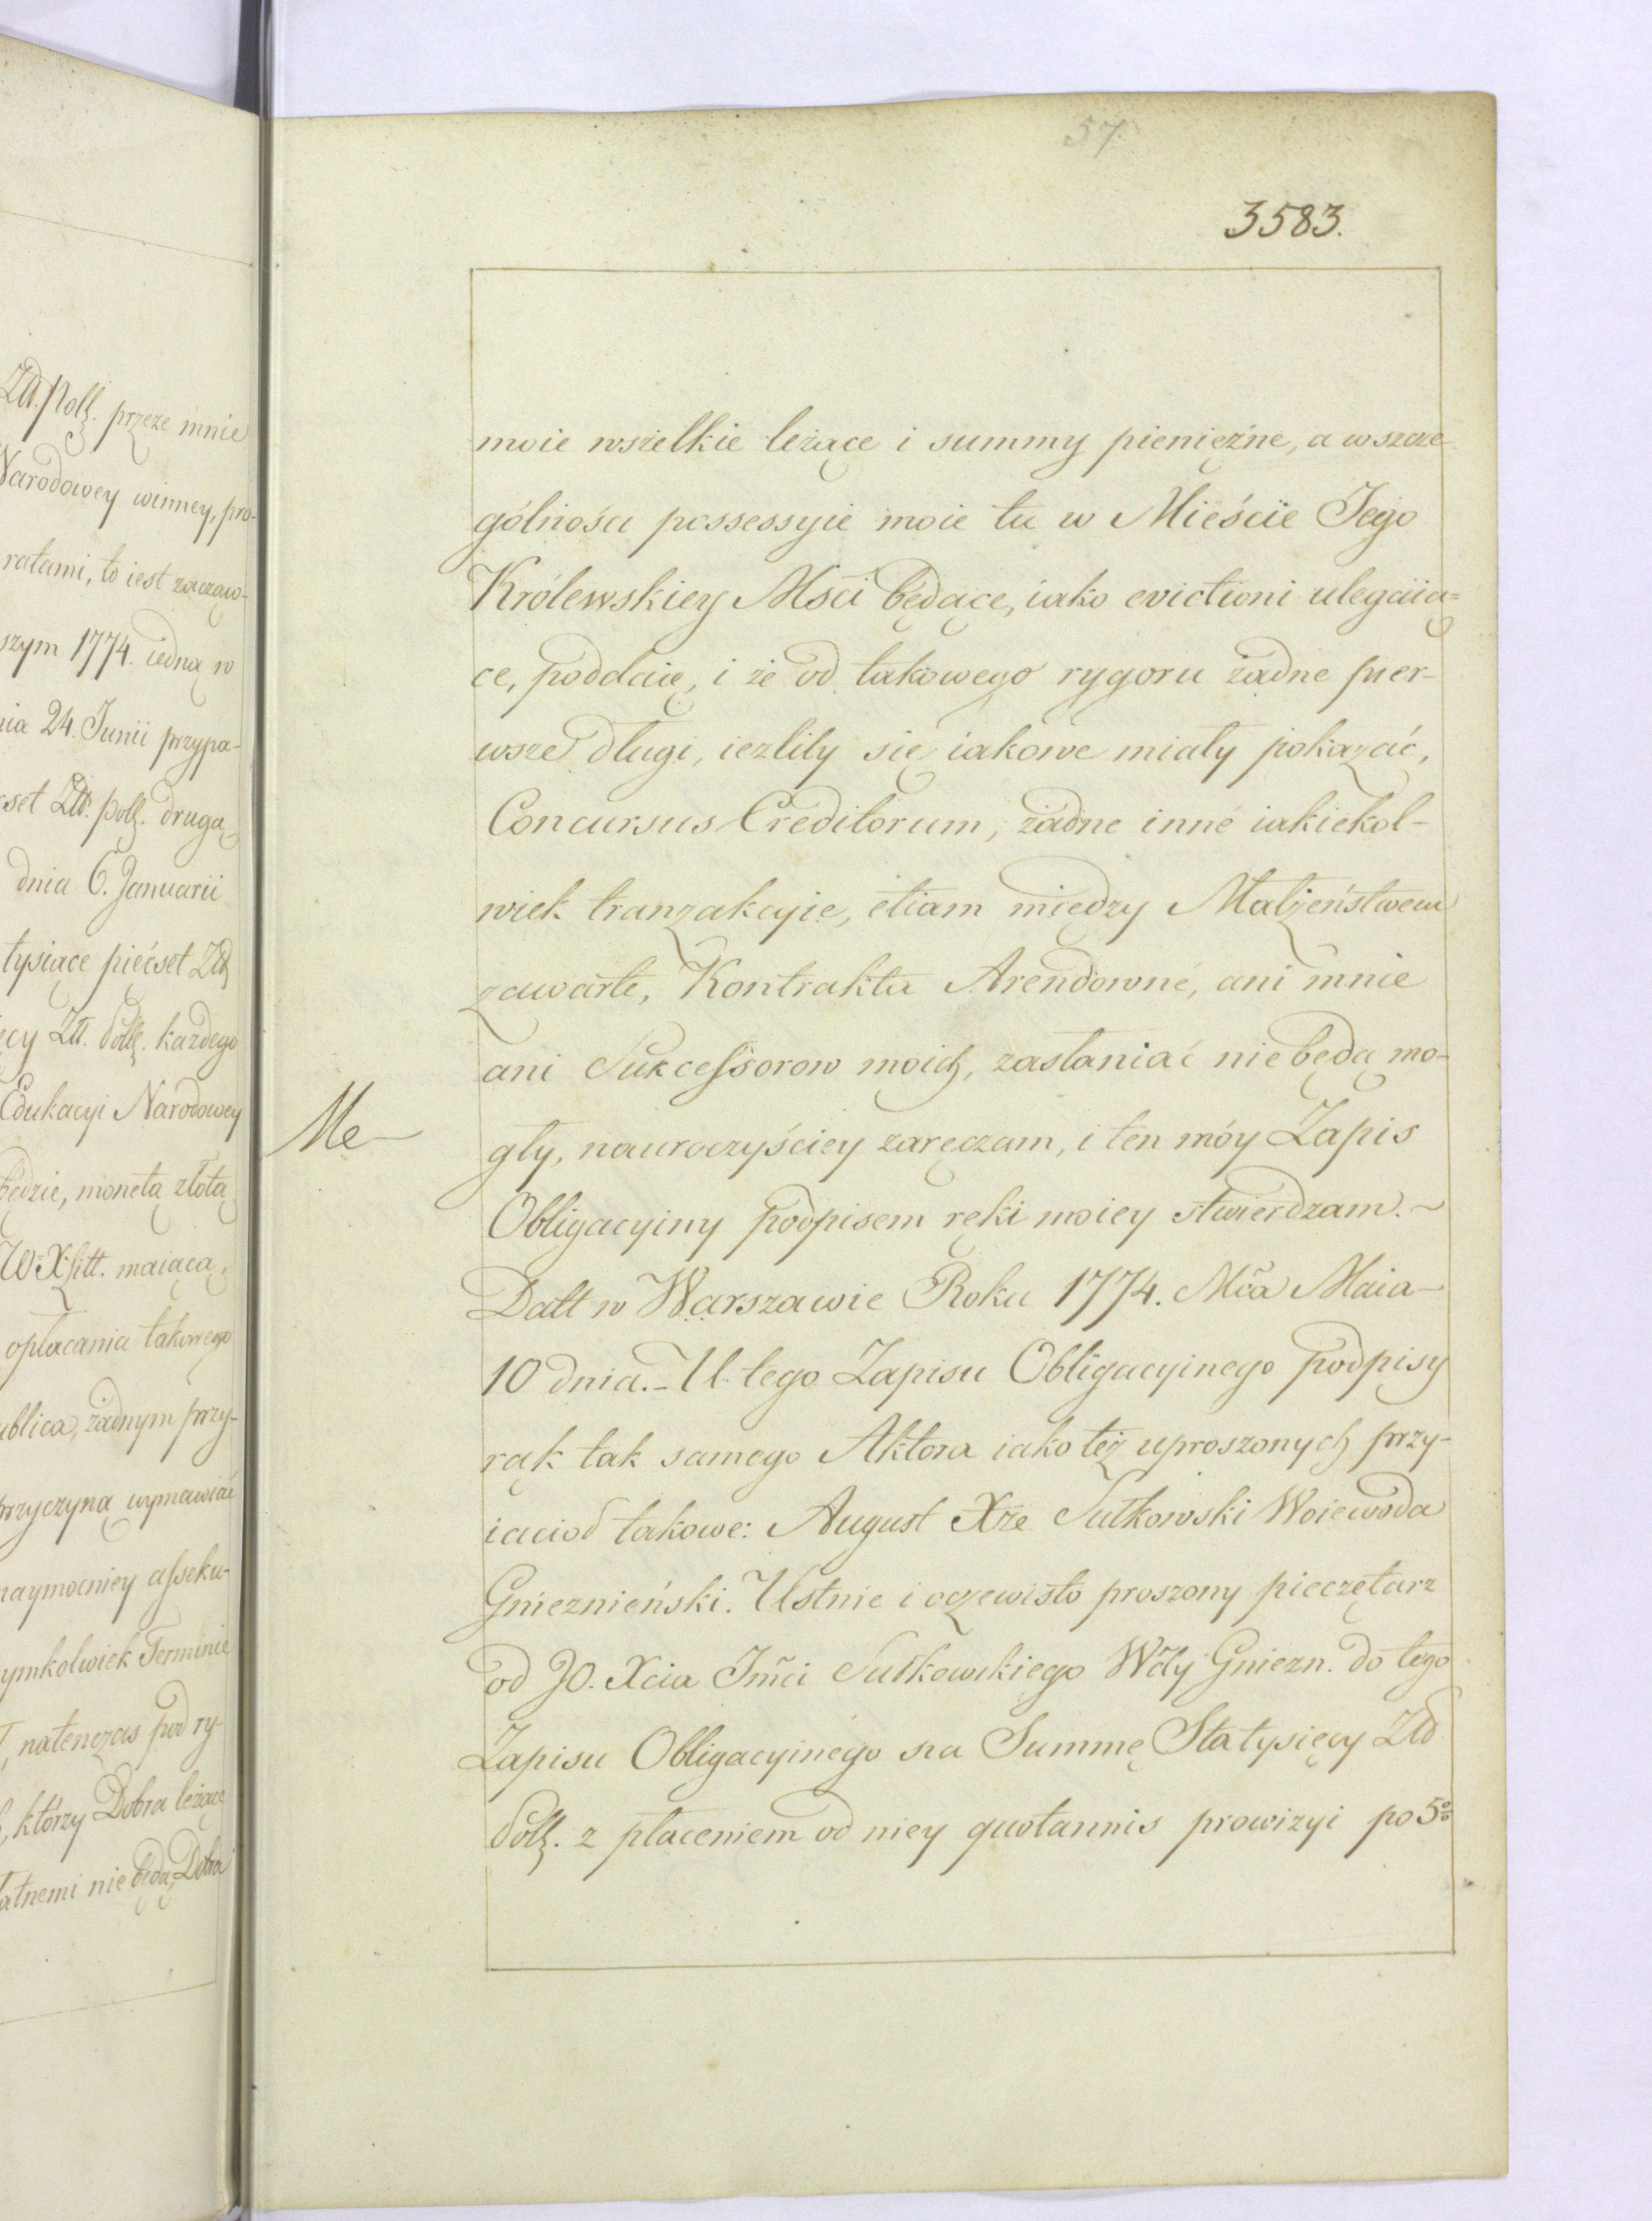 57
3583.
moie wszelkie leżące i summy pieniężne, a w szcze-
gólności possessyie moie tu w Mieście Jego
Królewskiey Mści będące, iako evictioni ulegaią=
ce, poddaię, i że od takowego rygoru żadne pier-
wsze długi, iezliby się iakowe miały pokazać,
Concursus Creditorum, żadne inne iakiekol-
wiek tranzakcyie, etiam między Małżeństwem
zawarte, Kontrakta Arendowne, ani mnie
ani Sukcessorow moich, zasłaniać nie będą mo-
Me
gły, nauroczyściey zaręczam, i ten móy Zapis
Obligacyiny podpisem ręki moiey stwierdzam.~
Datt w Warszawie Roku 1774. Mca Maia
10 dnia.- U tego Zapisu Obligacyinego podpisy
rąk tak samego Aktora iako też uproszonych przy-
iaciod takowe: August Xże Sułkowski Woiewoda
Gnieznieński. Ustnie i oczewisto proszony pieczętarz
od JO. Xcia Jmci Sułkowskiego Wdy Gniezn. do tego
Zapisu Obligacyinego na Summę Sta tysięcy Złd
Polł. z płaceniem od niey quotannis prowizyi po 5%
Złł. Polł. przeze mnie
Narodowey winney, pro-
ratami, to iest zacząw-
szym 1774. iedną w
nia 24. Junii przypa-
set Złł. polł. drugą
dnia 6. Januarii
tysiące pięćset Złł
ęcy Złł. Polł. każdego
Edukacyi Narodowey
będzie, monetą złotą
W. X. Litt. maiącą,
opłacania takowego
ublica, żadnym przy-
przyczyną wymawiać
naymocniey asseku-
ymkolwiek Terminie
natenczas pod ry-
którzy Dobra leżące
atnemi nie będą, Dobra